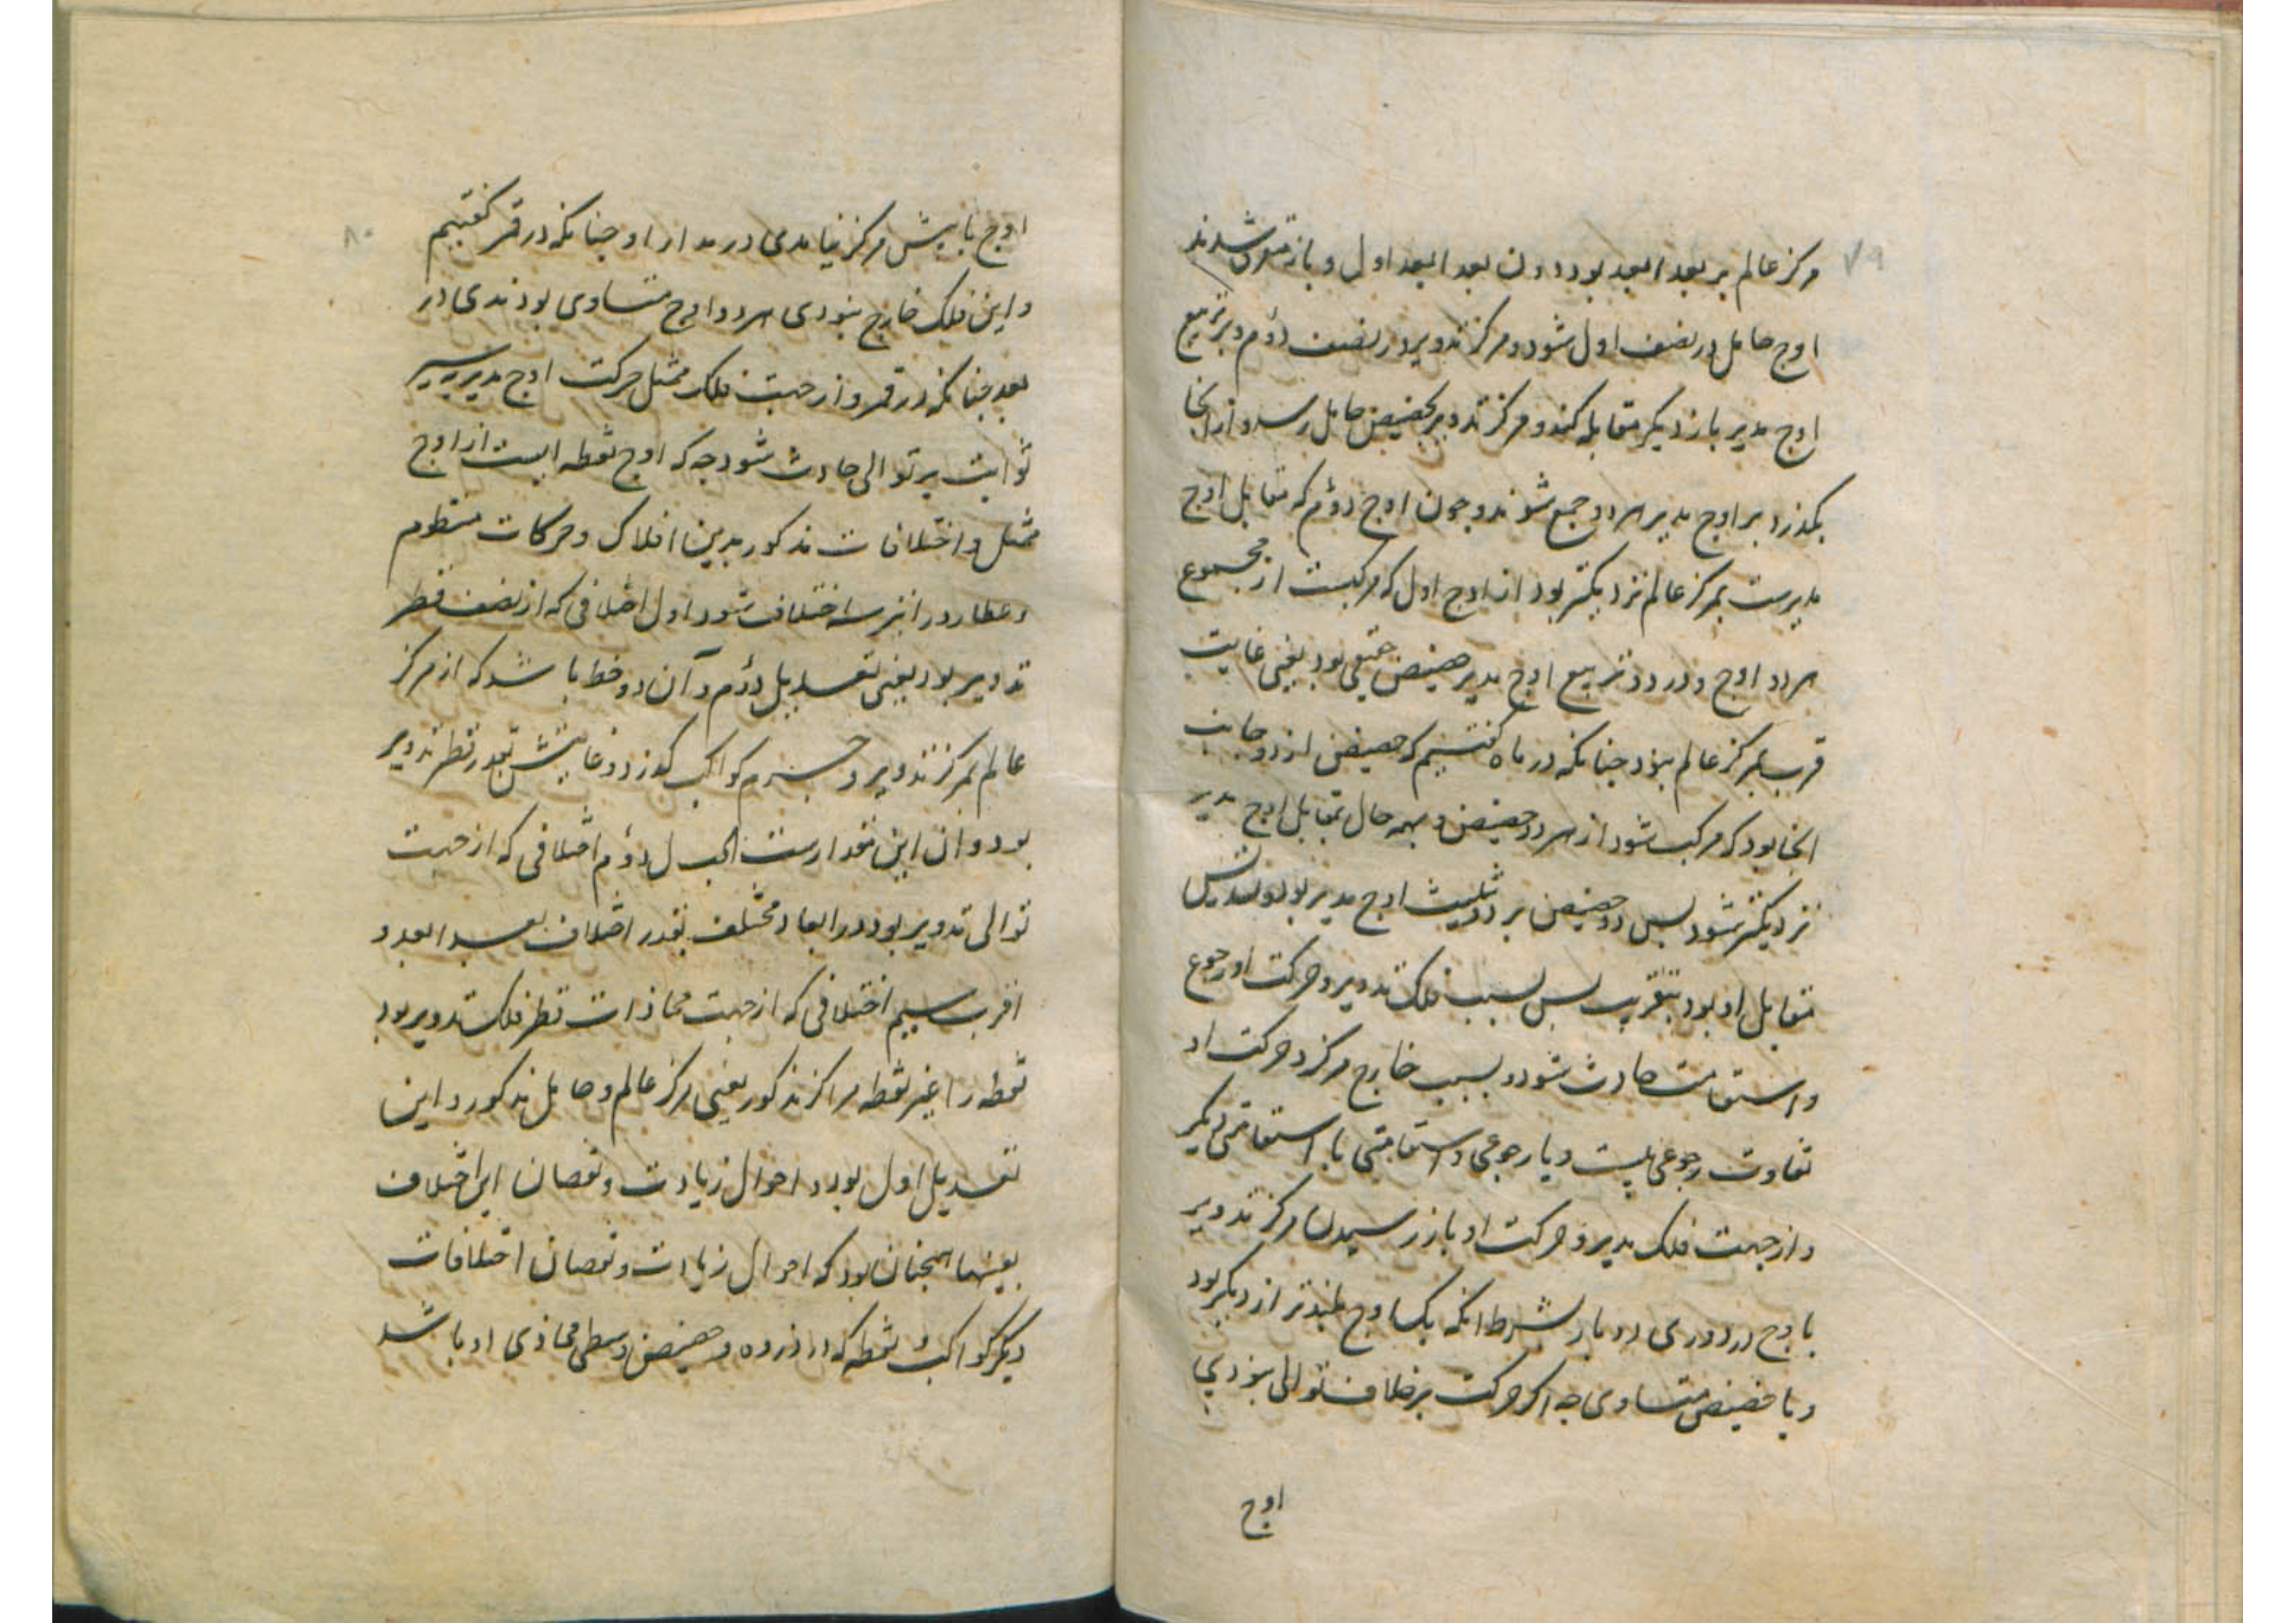 ۷۹
مرکز عالم بر بعد ابعد بود دون بعد ابعد اول و باز متفرق شوند
اوج حامل در نصف اول شود و مرکز تدویر در نصف دوم و بر تربیع
اوج مدیر باز دیگر مقابله کنند و مرکز تدویر بحضیض حامل رسد و از انجا
بکذرد بر اوج مدیر هر دو جمع شوند و چون اوج دوم که مقابل اوج
مدیرست بمرکز عالم نزدیکتر بود از اوج اول که مرکبست از مجموع
هر دو اوج و در دو تربیع اوج مدیر حضیض حقیقی بود یعنی غایت
قرب بمرکز عالم نبود چنانکه در ماه کفتیم که حضیض از دو جانب
انجا بود که مرکب شود از هر دو حضیض و بهمه حال بمقابل اوج مدیر
نزدیکتر شود پس دو حضیض بر دو تثلیث اوج مدیر بود و
مقابل او بود بتقریب پس بسبب فلک تدویر و حرکت او رجوع
و استقامت حادث شود و بسبب خارج مرکز و حرکت او
تفاوت رجوعی و یا رجوعی و استقامتی با استقامتی دیکر
و از جهت فلک مدیر و حرکت او باز رسیدن مرکز تدویر
باوج در دوری دو بار بشرط انکه یک اوج بلندتر از دیکر بود
و با حضیض متساوی چه اکر حرکت بر خلاف توالی نبودی
اوج
۸۰
اوج با پیش مرکز نیامدی در مدار او چنانکه در قمر کفتیم
و این فلک خارج نبودی هر دو اوج متساوی بودندی در
بعد چنانکه در قمر و از جهت فلک ممثل حرکت اوج مدیر بسیر
ثوابت بر توالی حادث شود چه که اوج نقطه ایست از اوج
ممثل و اختلافات مذکور بدین افلاک و حرکات منظوم
و عطارد را نیز سه اختلاف شود اول اختلافی که از نصف قطر
تدویر بود یعنی تعدیل دوم و آن دو خط باشد که از مرکز
عالم بمرکز تدویر و جرم کواکب کذرد و غایتش بقدر قطر تدویر
بود و ان این مقدارست الب ل دوم اختلافی که از جهت
توالی تدویر بود در ابعاد مختلف بقدر اختلاف بعد ابعد و
اقرب سیم اختلافی که از جهت محاذات قطر فلک تدویر بود
نقطه را غیر نقطه مراکز مذکور یعنی مرکز عالم و حامل مذکور و این
تعدیل اول بود و احوال زیادت و نقصان این اختلاف
بعینها همچنان بود که احوال زیادت و نقصان اختلافات
دیکر کواکب و نقطه که در ذروه و حضیض وسطی محاذی او باشد